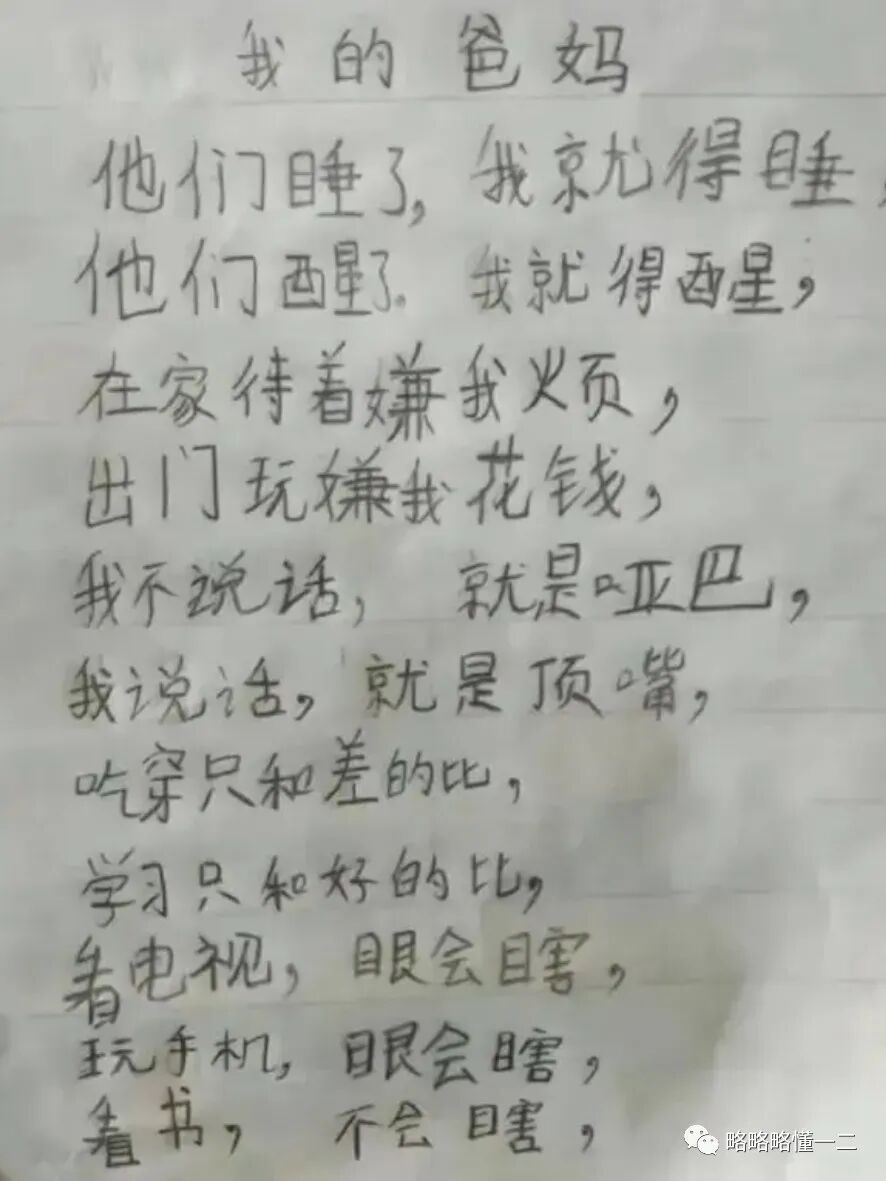 我的爸妈
他们睡了,我就得睡,
他们醒了。我就得醒,
在家待着嫌我烦,
出门玩嫌我花钱,
我不说话,就是哑巴,
我说话,就是顶嘴,
吃穿只和差的比,
学习只和好的比,
看电视,眼会瞎,
玩手机,眼会瞎,
看书,不会瞎,
略略略懂一二